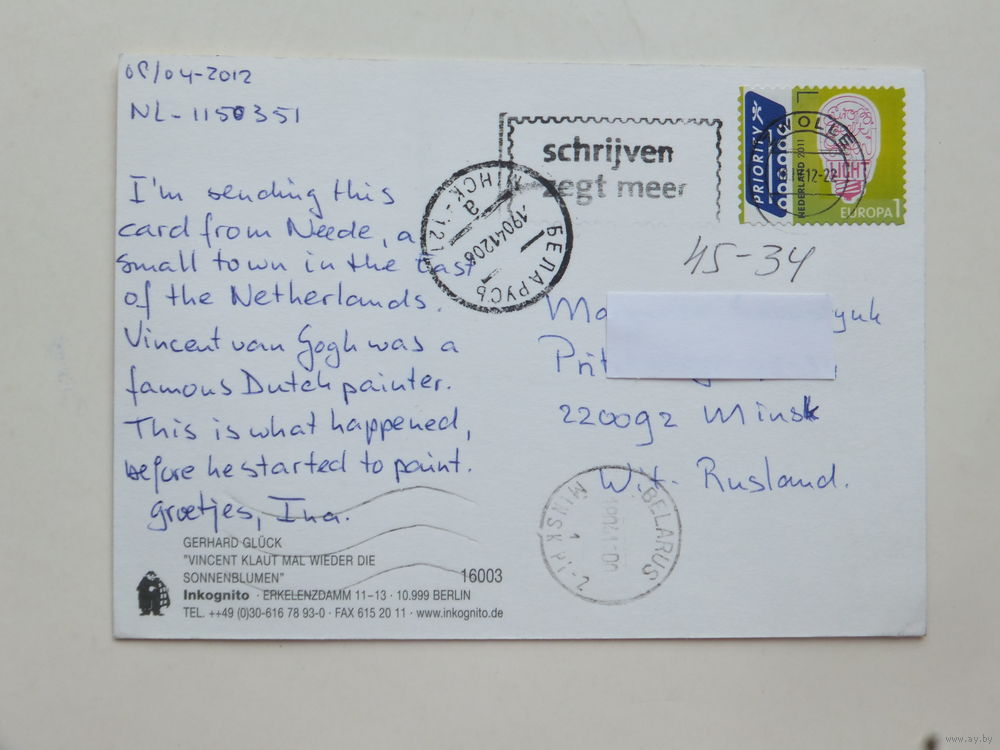 08/04-2012
NL-1150351
I'm sending this
card from Neede, a
small town in the east
of the Netherlands.
Vincent van Gogh was a
famous Dutch painter.
This is what happened,
before he started to paint.
groetjes, Ina.
GERHARD GLÜCK
"VINCENT KLAUT MAL WIEDER DIE
SONNENBLUMEN"
16003
Inkognito · ERKELENZDAMM 11–13 · 10.999 BERLIN
TEL. ++49 (0)30-616 78 93-0 · FAX 615 20 11 · www.inkognito.de
schrijven
zegt meer
МІНСК - 121
а
190412 06
БЕЛАРУСЬ
PRIORITY
NEDERLAND 2011
LICHT
EUROPA 1
45-34
220092 Minsk
Wit Rusland.
BELARUS
MINSK
www.ay.by